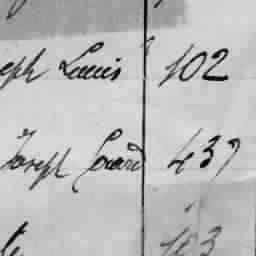 eph Louis 102
Joseph Coward 437
103